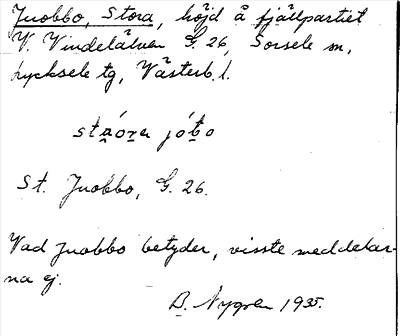 Juobbo, Stora, höjd å fjällpartiet
V. Vindelälven G. 26, Sorsele sn,
Lycksele tg, Västerb. l.
stạ́ọrẹr jóḅo
St. Juobbo, G. 26.
Vad Juobbo betyder, visste meddelar-
na ej.
B. Nygren 1935.